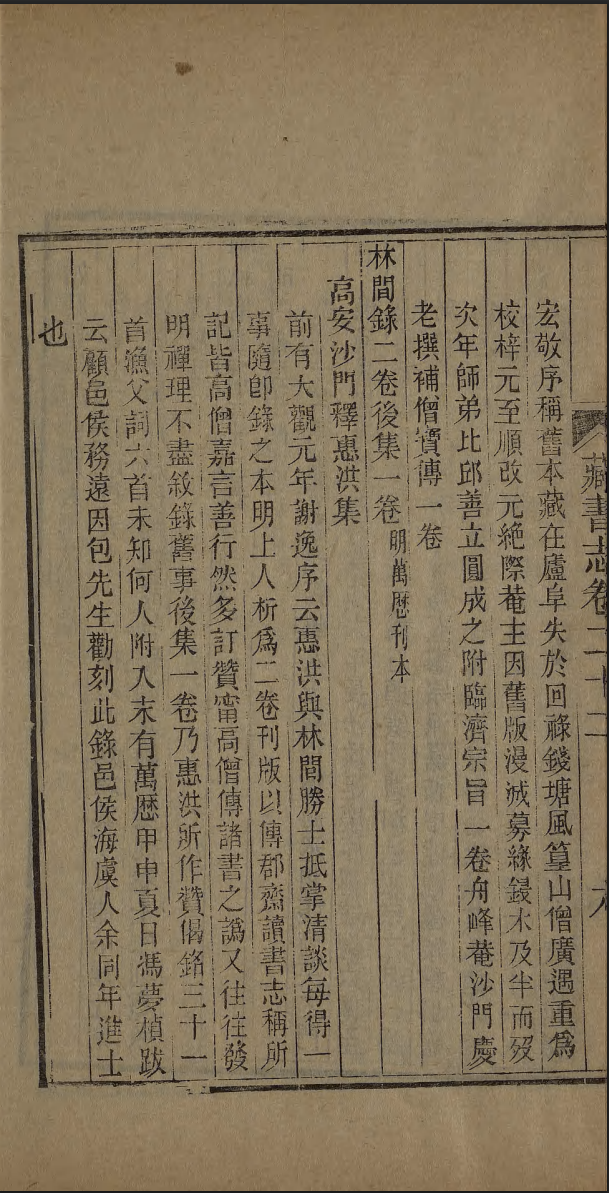 藏書志卷二十二
宏敬序稱舊本藏在廬阜失於回祿錢塘風篁山僧廣遇重為
校梓元至順改元絶際菴主因舊版漫滅募緣鋟木及半而歿
次年師弟比邱善立圓成之附臨濟宗旨一卷舟峰菴沙門慶
老撰補僧寶傳一卷
林間錄二卷後集一卷明萬歷刊本
高安沙門釋惠洪集
前有大觀元年謝逸序云惠洪與林間勝士抵掌清談每得一
事隨卽錄之本明上人析為二卷刊版以傳郡齋讀書志稱所
記皆高僧嘉言善行然多訂贊甯高僧傳諸書之譌又往往發
明禪理不盡敘錄舊事後集一卷乃惠洪所作贊偈銘三十一
首漁父詞六首未知何人附入末有萬歷甲申夏日馮夢楨跋
云顧邑侯務遠因包先生勸刻此錄邑侯海虞人余同年進士
也